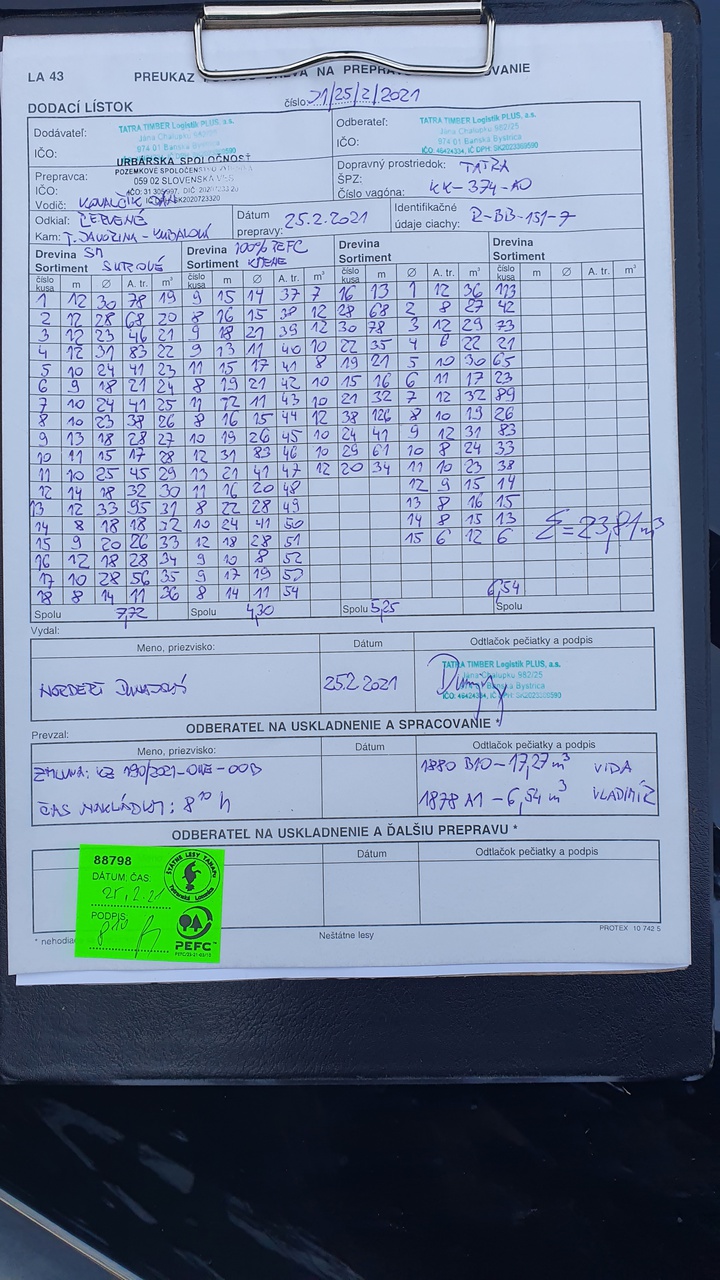 LA 43
PREUKAZ NA PREPRAVU
DODACÍ LÍSTOK
číslo: 21/25/2/2021
Dodávateľ:
TATRA TIMBER Logistik PLUS, a.s.
Jána Chalupku 982/25
974 01 Banská Bystrica
IČO:
Odberateľ:
TATRA TIMBER Logistik PLUS, a.s.
Jána Chalupku 982/25
974 01 Banská Bystrica
IČO: 46424334, IČ DPH: SK2023369590
IČO:
URBÁRSKA SPOLOČNOSŤ
059 02 SLOVENSKÁ VES
Prepravca:
Vodič: KOVALČÍK JÁN
Dopravný prostriedok: TATRA
ŠPZ:
Číslo vagóna: KK-374-AO
Odkiaľ: ČERVENÉ
Kam: T. JAVORINA-
Dátum prepravy: 25.2.2021
Identifikačné údaje ciachy: R-BB-151-7
Drevina SM
Sortiment SUROVÉ
Drevina 100% PEFC
Sortiment KMENE
Drevina
Sortiment
Drevina
Sortiment
číslo kusa m Ø A. tr. m³ číslo kusa m Ø A. tr. m³ číslo kusa m Ø A. tr. m³ číslo kusa m Ø A. tr. m³
1 12 30 78 19 9 15 14 37 7 16 13 1 12 36 113
2 12 28 68 20 8 16 15 38 12 28 68 2 8 27 42
3 12 23 46 21 9 18 21 39 12 30 78 3 12 29 73
4 12 31 83 22 9 13 11 40 10 22 35 4 6 22 21
5 10 24 41 23 11 15 17 41 8 19 21 5 10 30 65
6 9 18 21 24 8 19 21 42 10 15 16 6 11 17 23
7 10 24 41 25 11 12 11 43 10 21 32 7 12 32 89
8 10 23 38 26 8 16 15 44 12 38 126 8 10 19 26
9 13 18 28 27 10 19 26 45 10 24 41 9 12 31 83
10 11 15 17 28 12 31 83 46 10 29 61 10 8 24 33
11 10 25 45 29 13 21 41 47 12 20 34 11 10 23 38
12 14 18 32 30 11 16 20 48 12 9 15 14
13 12 33 95 31 8 22 28 49 13 8 16 15
14 8 18 18 32 10 24 41 50 14 8 15 13
15 9 20 26 33 12 18 28 51 15 6 12 6
Σ=23,81m³
16 12 18 28 34 9 10 8 52
17 10 28 56 35 9 17 19 53
18 8 14 11 36 8 14 11 54
6,54
Spolu 7,72 Spolu 4,30 Spolu 5,25 Spolu
Vydal:
Meno, priezvisko: Dátum Odtlačok pečiatky a podpis
NORBERT 25.2.2021
TATRA TIMBER Logistik PLUS, a.s.
Jána Chalupku 982/25
974 01 Banská Bystrica
IČO: 46424334, IČ DPH: SK2023369590
ODBERATEĽ NA USKLADNENIE A SPRACOVANIE *
Prevzal:
Meno, priezvisko: Dátum Odtlačok pečiatky a podpis
ZMLUVA: KZ 190/2021-
1880 B10-17,27m³ VIDA
ČAS NAKLÁDKY: 8¹⁰ h
1878 A1-6,54 m³ VLADIMÍR
ODBERATEĽ NA USKLADNENIE A ĎALŠIU PREPRAVU *
Dátum Odtlačok pečiatky a podpis
88798
DÁTUM: ČAS:
25.2.21
PODPIS:
8¹⁰
ŠTÁTNE LESY TANAPu
Tatranská Lomnica
PEFC
* nehodia
Neštátne lesy
PROTEX 10 742 5